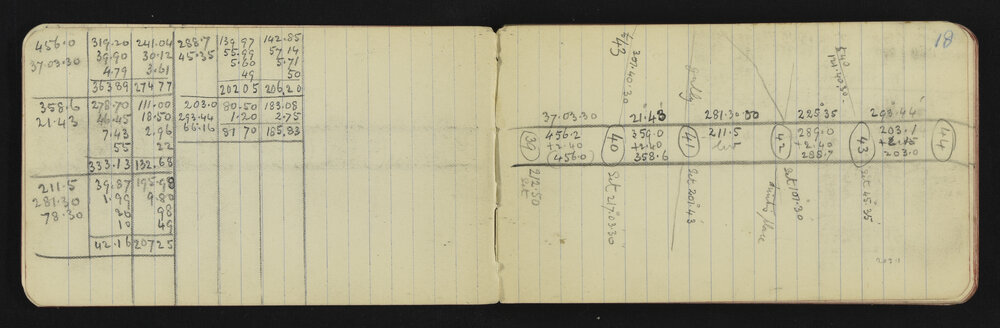 456.0 319.20 241.04 288.7 139.97 142.85
39.90 30.12 45.35 55.99 57.14
37.03.30 4.79 3.61 5.60 5.71
49 50
363.89 274.77 202.05 206.20
358.6 278.70 111.00 203.0 80.50 183.08
21.43 46.45 18.50 293.44 1.20 2.75
7.43 2.96 66.16 81.70 185.83
55 22
333.13 132.68
211.5 39.87 195.98
281.30 1.99 9.80
78.30 20 98
10 49
42.16 207.25
18
307.40.30
gully
37.03.30 21.43 281.30.00 225.35 293.44
39 456.2 40 359.0 41 211.5 42 289.0 43 203.1 44
+2.40 +2.40 +2.40
(456.0) 358.6 288.7 203.0
212.50
Set
Set 217.03.30
Set 201.43
Set 101.30
Set 45.35
203.1